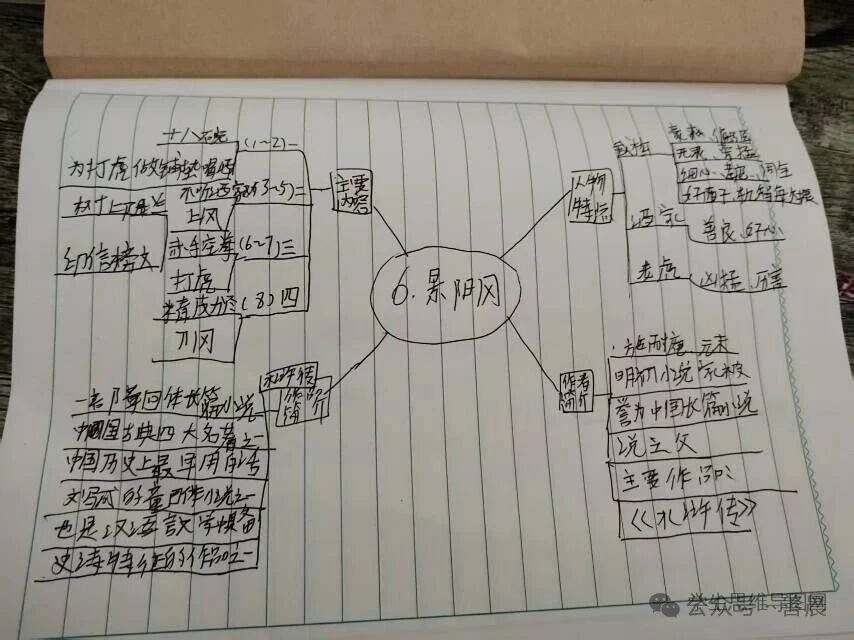 6.景阳冈
主要
内容
(1~2)一
十八碗
(3~5)二
上冈
(6~7)三
赤手空拳
打虎
(8)四
下冈
为打虎做铺垫
印信榜文
人物
特点
武松
豪放 倔强
无畏、勇猛
细心、
好面子、
酒家
善良、好心
老虎
凶猛、厉害
作者
简介
施耐庵 元末
明初小说家被
誉为中国长篇小说
说之父
主要作品：
《水浒传》
水浒传
作品
简介
一部章回体长篇小说
中国古典四大名著之一
中国历史上最早用白话
文写成的章回体小说之一
也是汉语言文学具备
史诗特征的作品之一